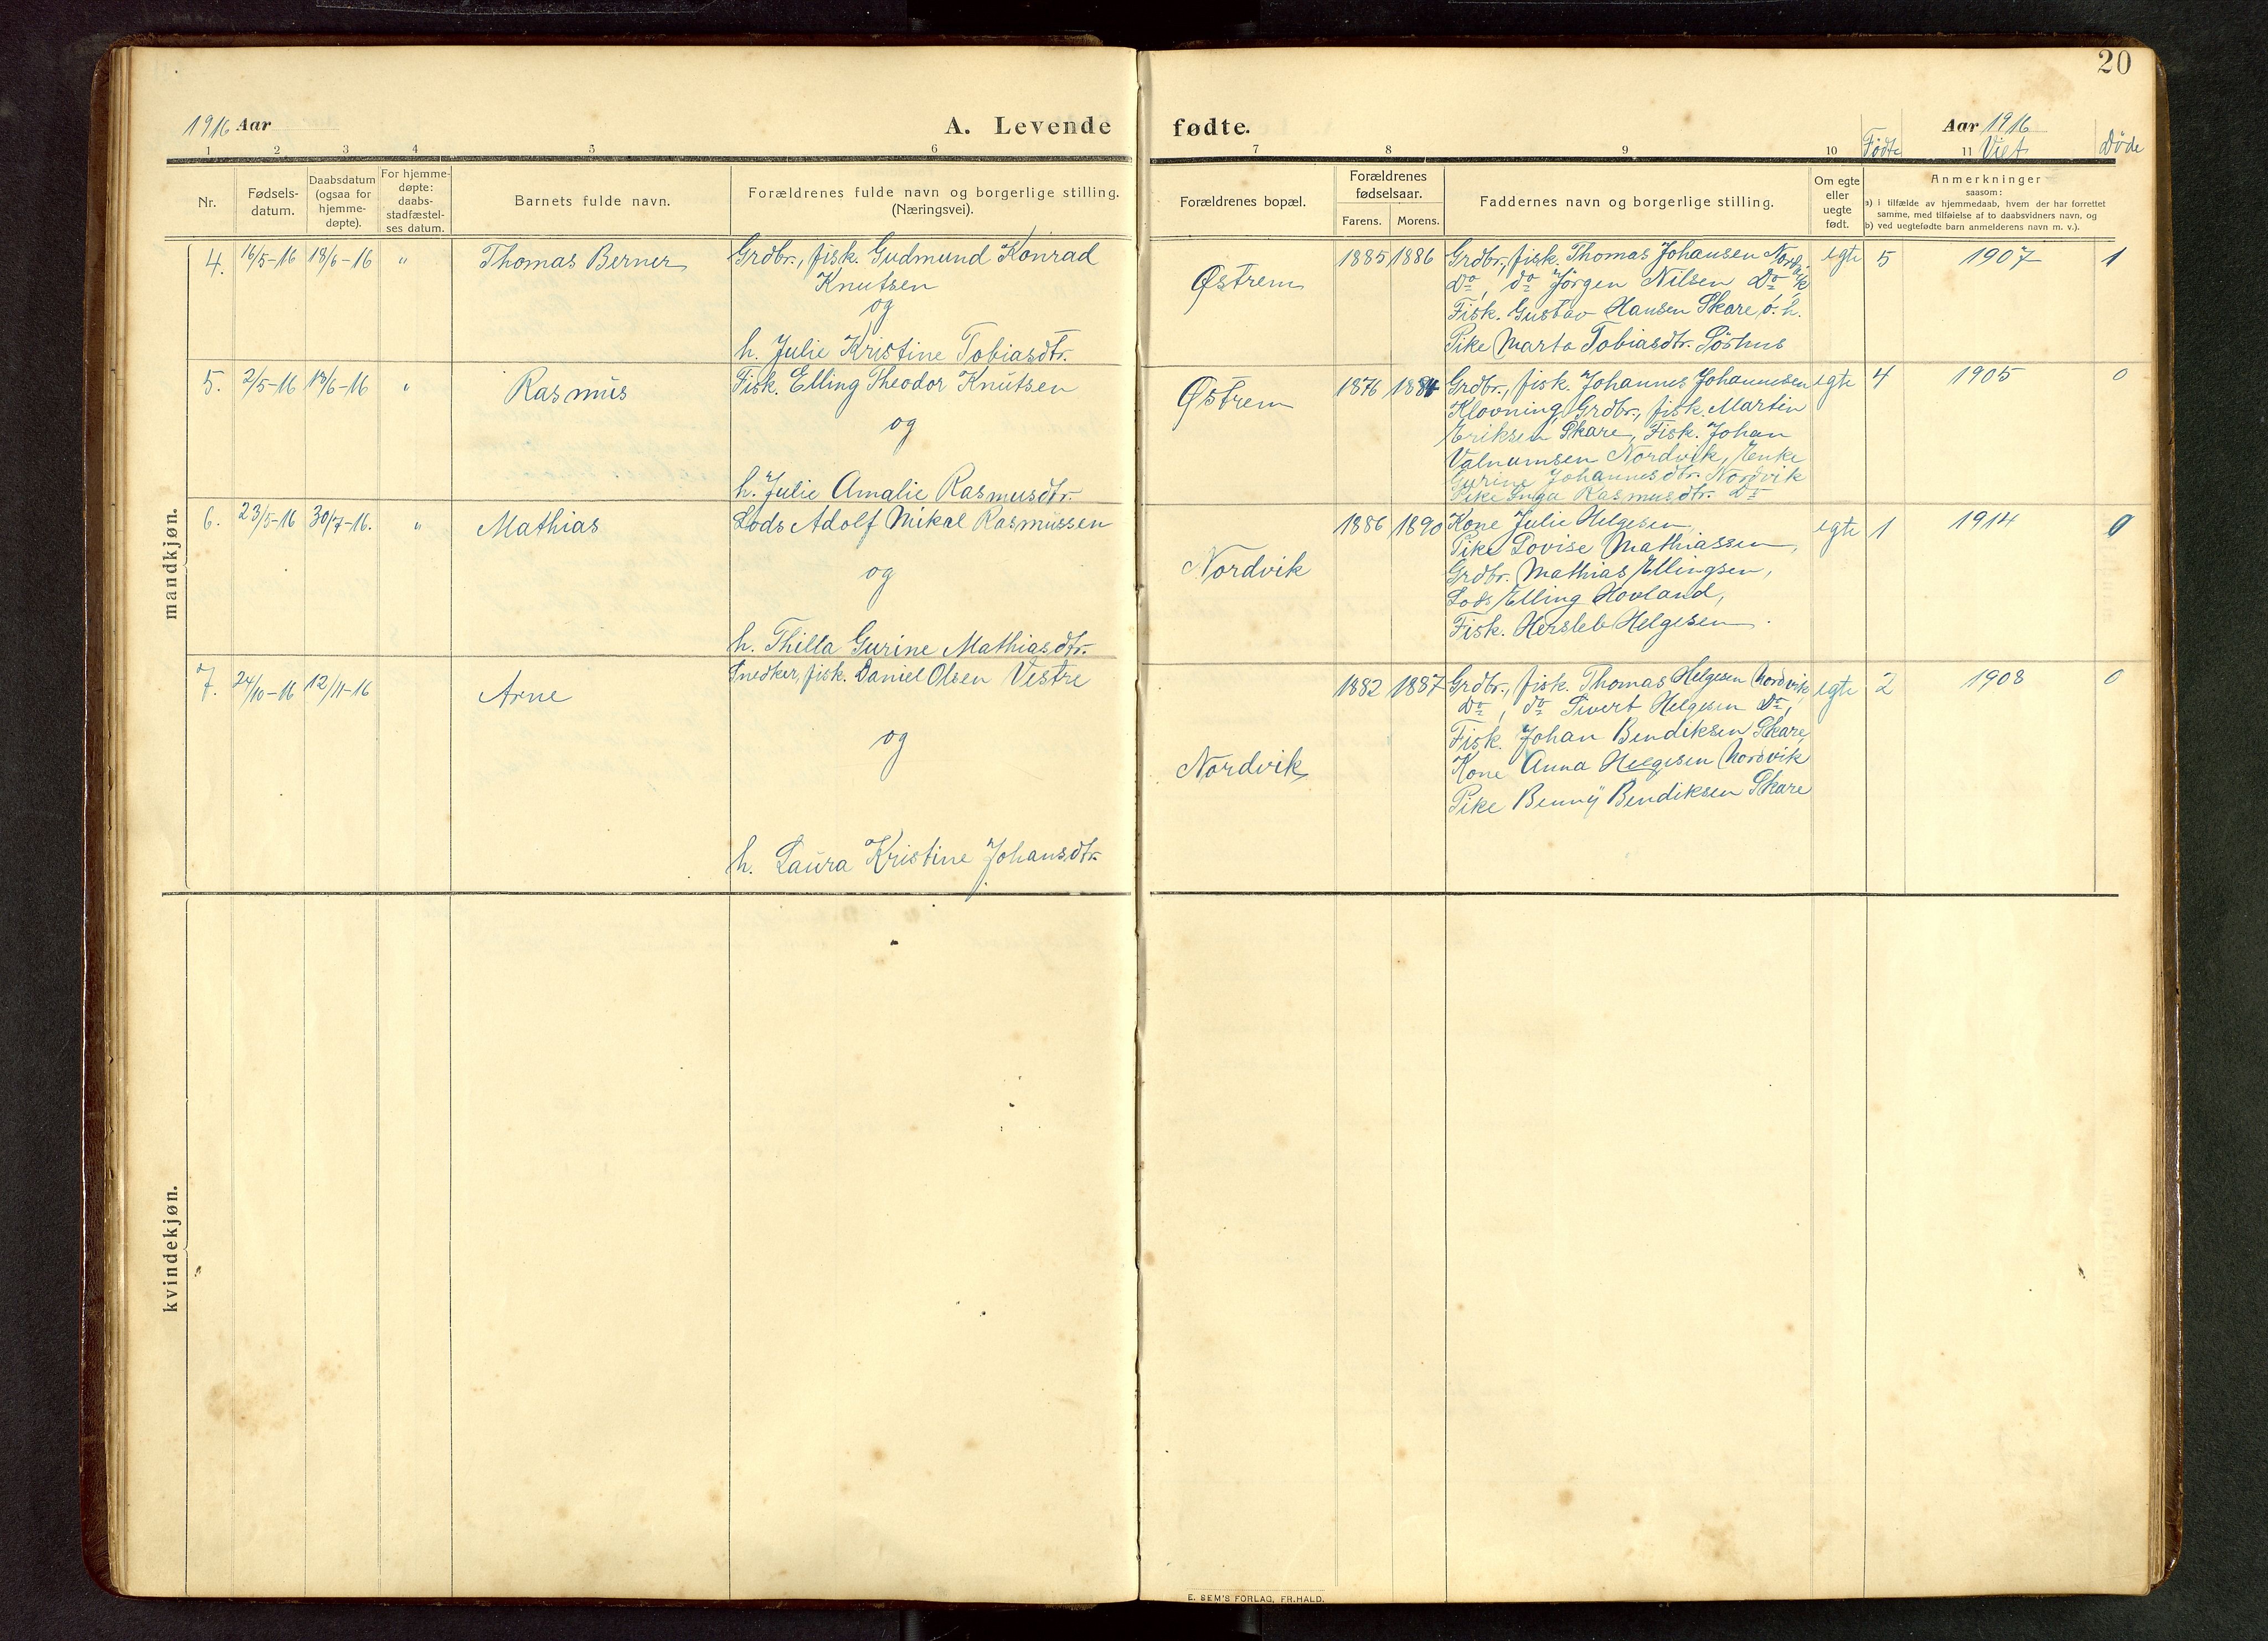 20
1916 Aar
A. Levende fødte.
Aar 1916
1 2 3 4 5 6 7 8 9 10 Fødte 11 Viet Døde
Nr.
Fødsels-
datum.
Daabsdatum
(ogsaa for
hjemme-
døpte).
For hjemme-
døpte:
daabs-
stadfæstel-
ses datum.
Barnets fulde navn.
Forældrenes fulde navn og borgerlige stilling.
(Næringsvei).
Forældrenes bopæl.
Forældrenes
fødselsaar.
Farens. Morens.
Faddernes navn og borgerlige stilling.
Om egte
eller
uegte
født.
Anmerkninger
saasom:
a) i tilfælde av hjemmedaab, hvem der har forrettet
samme, med tilføielse af to daabsvidners navn, og
b) ved uegtefødte barn anmelderens navn m. v.).
mandkjøn.
4. 16/5-16 18/6-16 " Thomas Berner
Grdbr., fisk. Gudmund Konrad
Knutsen
og
h. Julie Kristine Tobiasdtr.
Østrem
1885 1886
Grdbr., fisk. Thomas Johansen Nordvik
Do, do Jörgen Nilsen Do,
Fisk. Gustav Hansen Skare, o. h.
Pike Marta Tobiasdtr. Sörhus
egte 5 1907 1
5. 2/5-16 18/6-16 " Rasmus
Fisk. Elling Theodor Knutsen
og
h. Julie Amalie Rasmusdtr.
Østrem
1876 1884
Grdbr., fisk. Johannes Johannesen
Klovning, Grdbr., fisk. Martin
Eriksen Skare, Fisk. Johan
Valnumsen Nordvik, Enke
Gurine Johannesdtr. Nordvik
Pike Inga Rasmusdtr. Do
egte 4 1905 0
6. 23/5-16 30/7-16. " Mathias
Lods Adolf Mikal Rasmussen
og
h. Thilla Gurine Mathiasdtr.
Nordvik
1886 1890
Kone Julie Helgesen,
Pike Lovise Mathiassen,
Grdbr. Mathias Ellingsen,
Lods Elling Hovland,
Fisk. Hersleb Helgesen.
egte 1 1914 0
7. 24/10-16 12/11-16 Arne
Snedker, fisk. Daniel Olsen Vestre
og
h. Laura Kristine Johansdtr.
Nordvik
1882 1887
Grdbr., fisk. Thomas Helgesen Nordvik,
Do, do Sivert Helgesen Do,
Fisk. Johan Bendiksen Skare,
Kone Anna Helgesen Nordvik
Pike Benny Bendiksen Skare
egte 2 1908 0
kvindekjøn.
E. SEM'S FORLAG, FR.HALD.